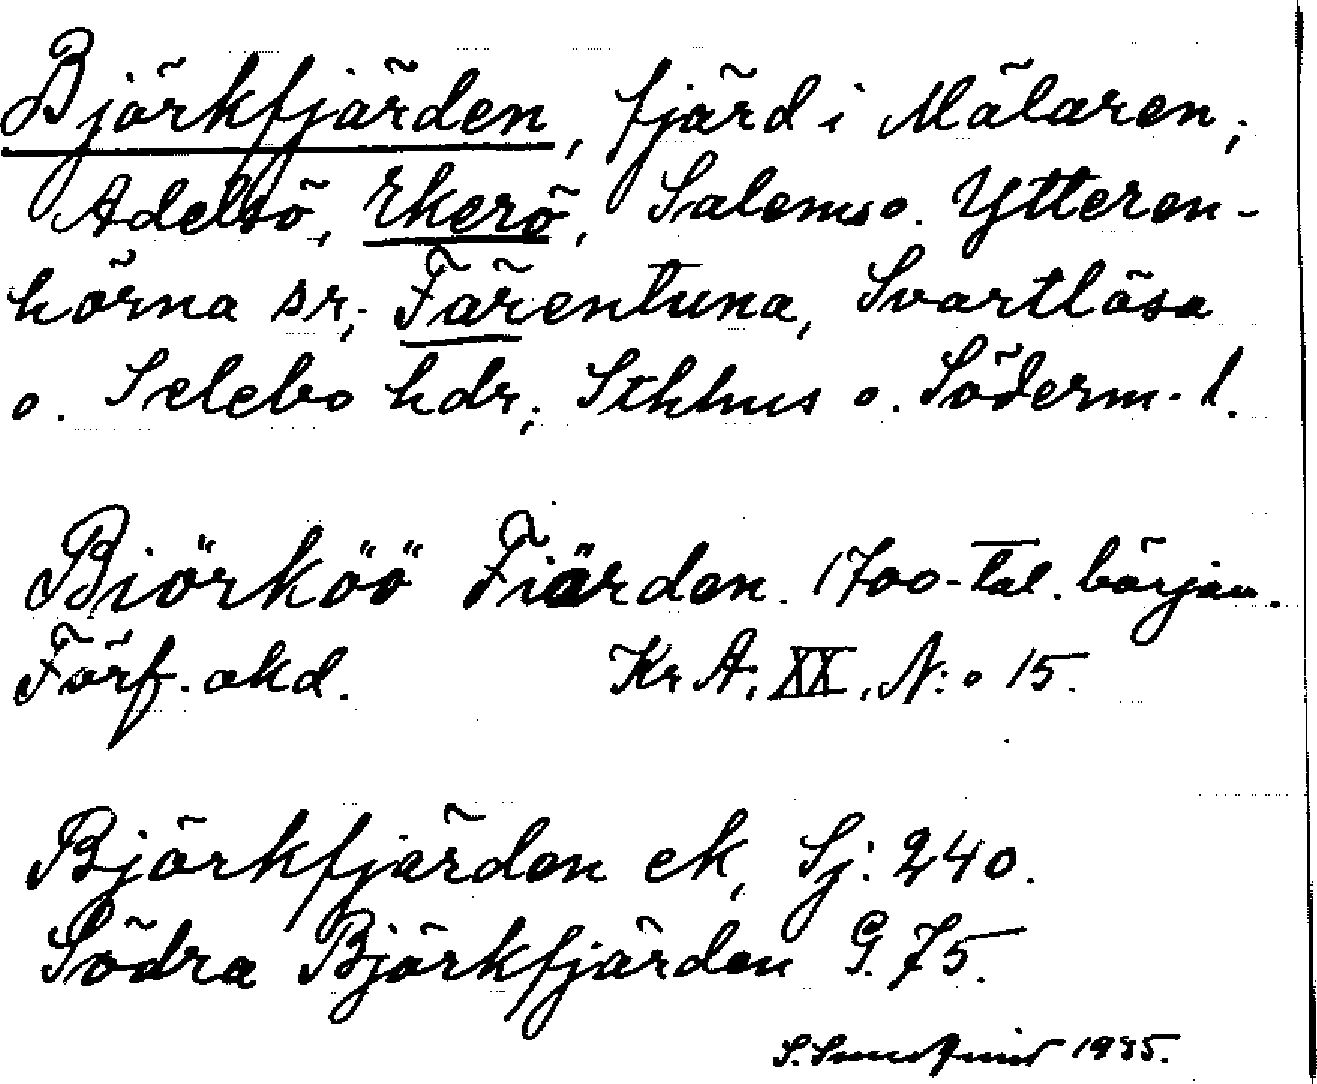 Björkfjärden, fjärd i Mälaren;
Adelsö, Ekerö, Salems o. Ytteren-
hörna sr; Färentuna, Svartlösa
o. Selebo hdr; Sthlms o. Söderm. l.
Biörköö Fiärden. 1700-tal. början.
Förf. okd. Kr A, XX, N:o 15.
Björkfjärden ek, Sj: 240.
Södra Björkfjärden G. 75.
S. 1935.